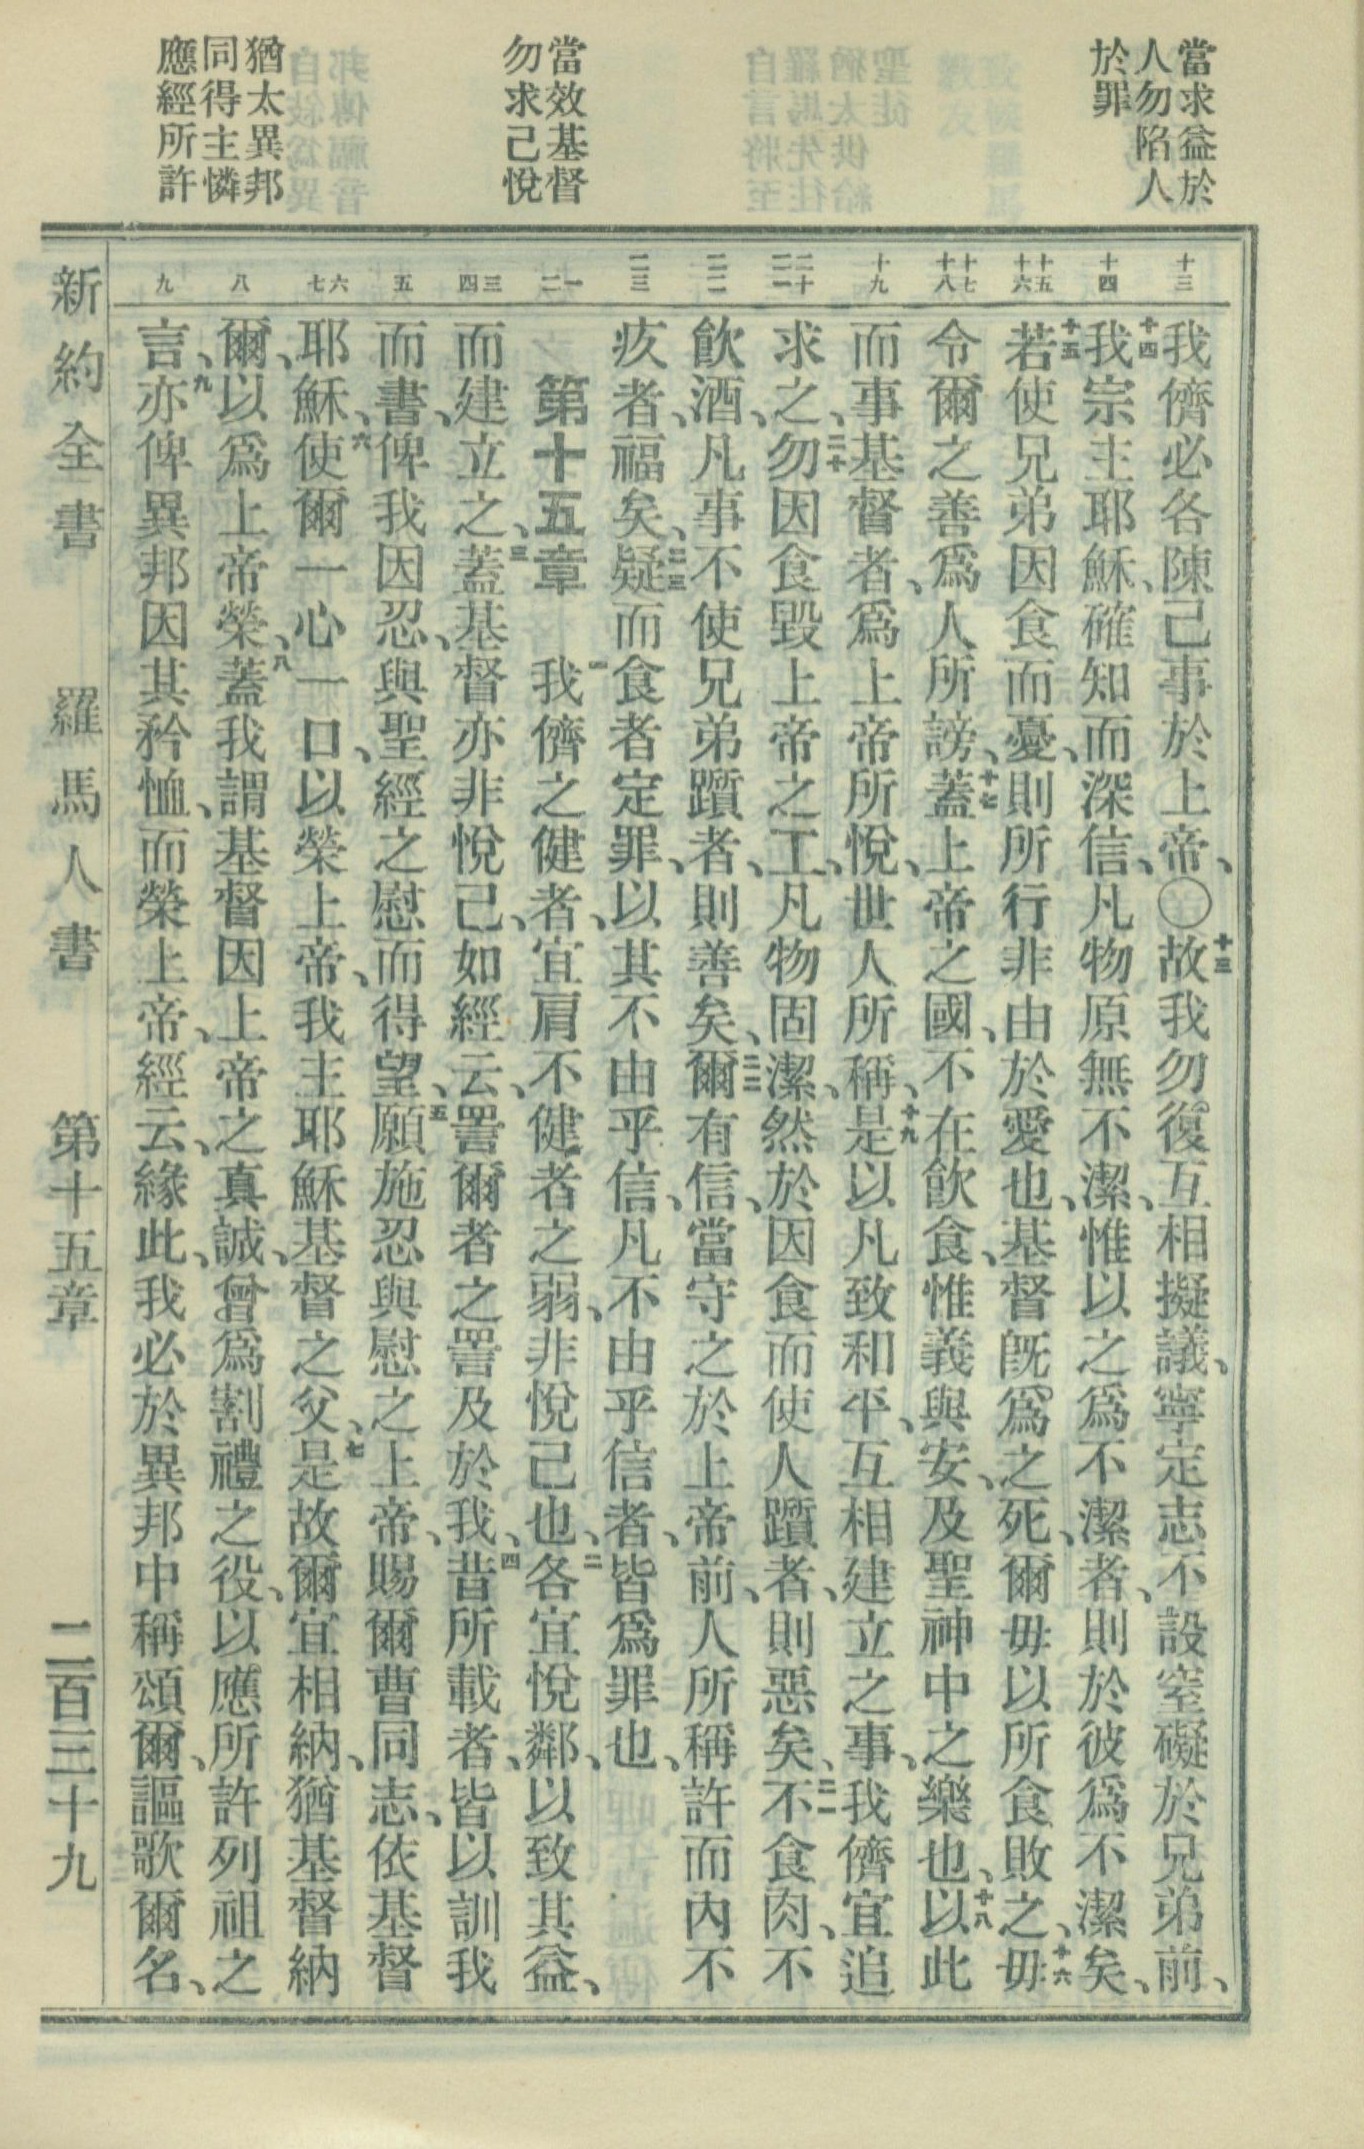 當求益於
人勿陷人
於罪
當效基督
勿求己悅
猶太異邦
同得主憐
應經所許
十三
十四
十五
十六
十七
十八
十九
二十
二一
二二
二三
一
二
三
四
五
六
七
八
九
我儕必各陳己事於上帝、〇十三故我勿復互相擬議、寧定志不設窒礙於兄弟前、
十四我宗主耶穌、確知而深信、凡物原無不潔、惟以之爲不潔者、則於彼爲不潔矣、
十五若使兄弟因食而憂、則所行非由於愛也、基督旣爲之死、爾毋以所食敗之、十六毋
令爾之善爲人所謗、十七蓋上帝之國、不在飮食、惟義與安、及聖神中之樂也、十八以此
而事基督者、爲上帝所悅、世人所稱、十九是以凡致和平、互相建立之事、我儕宜追
求之、二十勿因食毀上帝之工、凡物固潔、然於因食而使人躓者、則惡矣、二一不食肉、不
飮酒、凡事不使兄弟躓者、則善矣、二二爾有信、當守之於上帝前、人所稱許而內不
疚者、福矣、二三疑而食者定罪、以其不由乎信、凡不由乎信者、皆爲罪也、
第十五章 一我儕之健者、宜肩不健者之弱、非悅己也、二各宜悅鄰、以致其益、
而建立之、三蓋基督亦非悅己、如經云、詈爾者之詈及於我、四昔所載者、皆以訓我
而書、俾我因忍、與聖經之慰而得望、五願施忍與慰之上帝、賜爾曹同志、依基督
耶穌、六使爾一心一口、以榮上帝、我主耶穌基督之父、七是故爾宜相納、猶基督納
爾、以爲上帝榮、八蓋我謂基督因上帝之真誠、曾爲割禮之役、以應所許列祖之
言、九亦俾異邦因其矜恤、而榮上帝、經云、緣此、我必於異邦中稱頌爾、謳歌爾名、
新約全書 羅馬人書 第十五章 二百三十九